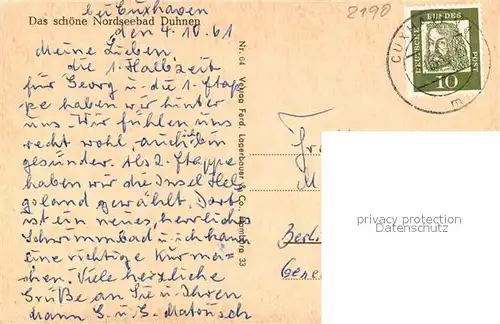 bei Cuxhaven
Das schöne Nordseebad Duhnen
den 4.10.61
Meine Lieben
die 1. Halbzeit
für Georg u. die 1. Etap
pe haben wir hinter
uns. Wir fühlen uns
recht wohl, auch bin
gesünder. Als 2. Etappe
haben wir die Insel Hel
goland gewählt. Dort
ist ein neues, herrliches
Schwimmbad u. ich kann
eine richtige Kur ma-
chen. Viele herzliche
Grüße an Sie u. Ihren
Mann G. u. G. Matousch
Nr. 64 Verlag Ferd. Lagerbauer & Co., Hamburg 33
2190
DEUTSCHE BUNDESPOST
10
CUXH
m
Berl
privacy protection
privacy protection